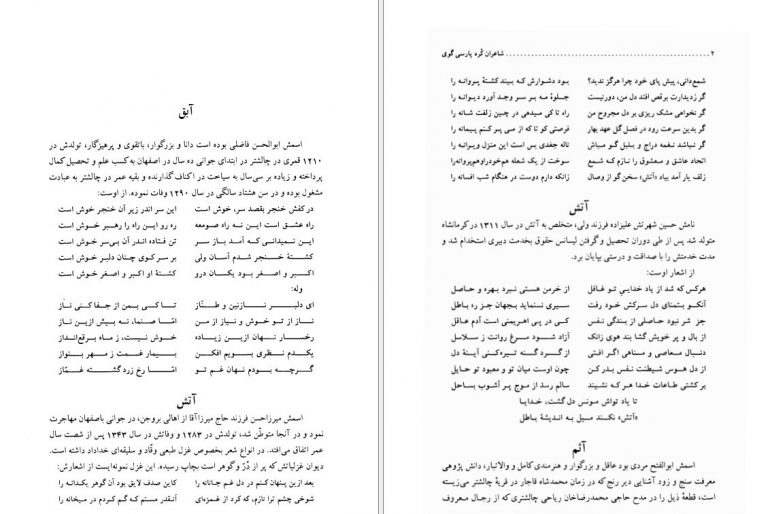 آبق
اسمش ابوالحسن فاضلی بوده است دانا و بزرگوار، باتقوی و پرهیزگار، تولدش در
۱۲۱۰ قمری در چالشتر در ابتدای جوانی ده سال در اصفهان به‌کسب علم و تحصیل کمال
پرداخته و زیاده بر سی‌سال به سیاحت در اکناف گذارنده و بقیه عمر در چالشتر به عبادت
مشغول بوده و در سن هشتاد سالگی در سال ۱۲۹۰ وفات نموده. از اوست:
در کفش خنجر بقصد سر، خوش است این سر اندر زیر آن خنجر خوش است
راه عشق است این نـه راه صومعه ره رو این راه را رهبر خوش است
این نمیدانی کـه آمـد باز سر تن فتاده اندر آن بی‌سر خوش است
کشتهٔ خنجرم شدم آسان ولی بر سر کوی چنان دلبر خوش است
اکبر و اصغر بود یکان درو کشتهٔ او اکبر و اصغر خوش است
وله:
ای دلبر نازنین و طنّاز تا کـی بمن از جفا کنی ناز
ناز از تو خوش و نیاز از من امّا صنما، نه بیش ازین ناز
رخسار نهان ازین زیاده خوش نیست، ز ماه برقع‌انداز
یکدم نظری بسویم افکن بیمار غمت ز مهر بنواز
گرچه بودم نهان غم تو امّا رخ زرد گشته غمّاز
آتش
اسمش میرزاحسن فرزند حاج میرزاآقا از اهالی بروجن، در جوانی باصفهان مهاجرت
نمود و در آنجا متوطّن شد، تولدش در ۱۲۸۳ و وفاتش در سال ۱۳۴۳ پس از شصت سال
عمر اتفاق می‌افتد. در انواع شعر بخصوص غزل طبعی وقّاد و سلیقه‌ای خداداد داشته است.
دیوان غزلیاتش که پر از دُرّ وگوهر است بچاپ رسیده. این غزل نمونه‌ایست از اشعارش:
بعد ازین پنهان کنم در دل غم جانانه را کاین صدف لایق بود آن گوهر یکدانه را
شوخی چشم ترا نازم، که کرد از غمزه‌ای آنقدر مستم که گم کردم در میخانه را
۲ شاعران کُرد پارسی گوی
شمع‌دانی، پیش پای خود چرا هرگز ندید؟ بود دشوارش که بیند کشتهٔ پروانـه را
گر زدیدارت برقص افتد دل من، دورنیست جلوهٔ مه بر سر وجد آورد دیوانه را
گر نخواهی مشک ریزی بر دل مجروح من راه تا کی میدهی در چین زلفت شانه را
گر بدین سرعت رود در فصل گل عهد بهار فرصتی کو تا که از می پر کنم پیمانه را
گر نباشد نغمه دراج و بلبل گو مباش ناله جغدی بس است این منزل ویرانه را
اتحاد عاشق و معشوق را نازم که شمع سوخت از یک شعله هم‌خودراوهم‌پروانه‌را
زلف یار آمد بیاد «آتش» سخن گو از وصال زانکه دارم دوست در هنگام شب افسانه را
آتش
نامش حسین شهرتش علیزاده فرزند ولی، متخلص به آتش در سال ۱۳۱۱ در کرمانشاه
متولد شد پس از طی دوران تحصیل و گرفتن لیسانس حقوق بخدمت دبیری استخدام شد و
مدت خدمتش را با صداقت و درستی بپایان برد.
از اشعار اوست:
هرکس که شد از یاد خدایی تو غافل از خرمن هستی نبرد بهره و حاصل
آنکو بتمنای دل سرکش خود رفت سیری ننماید بجهان جز ره باطل
جز شر نبود حاصلی از بندگی نفس کی در پی اهریمنی است آدم عاقل
از بال و پر خویش گشا بند هوی زانک آزاد شود مرغ روانت ز سلاسل
دنبال معاصی و مناهی اگر افتی از گرد گنه تیره‌کنی آینهٔ دل
از دل هوس شیطنت نفس بدر کن چون اوست میان تو و معبود تو حایل
بر کشتی طاعات خدا هر که نشیند سالم رسد از موج پر آشوب بساحل
تا یاد تواش مونس دل گشت، خدایا
«آتش» نکند میل به اندیشهٔ باطل
آثم
اسمش ابوالفتح مردی بود عاقل و بزرگوار و هنرمندی کامل و والاتبار، دانش پژوهی
معرفت سنج و زود آشنایی دیر رنج که در زمان محمدشاه قاجار در قریهٔ چالشتر می‌زیسته
است، قطعهٔ ذیل را در مدح حاجی محمدرضاخان ریاحی چالشتری که از رجال معروف